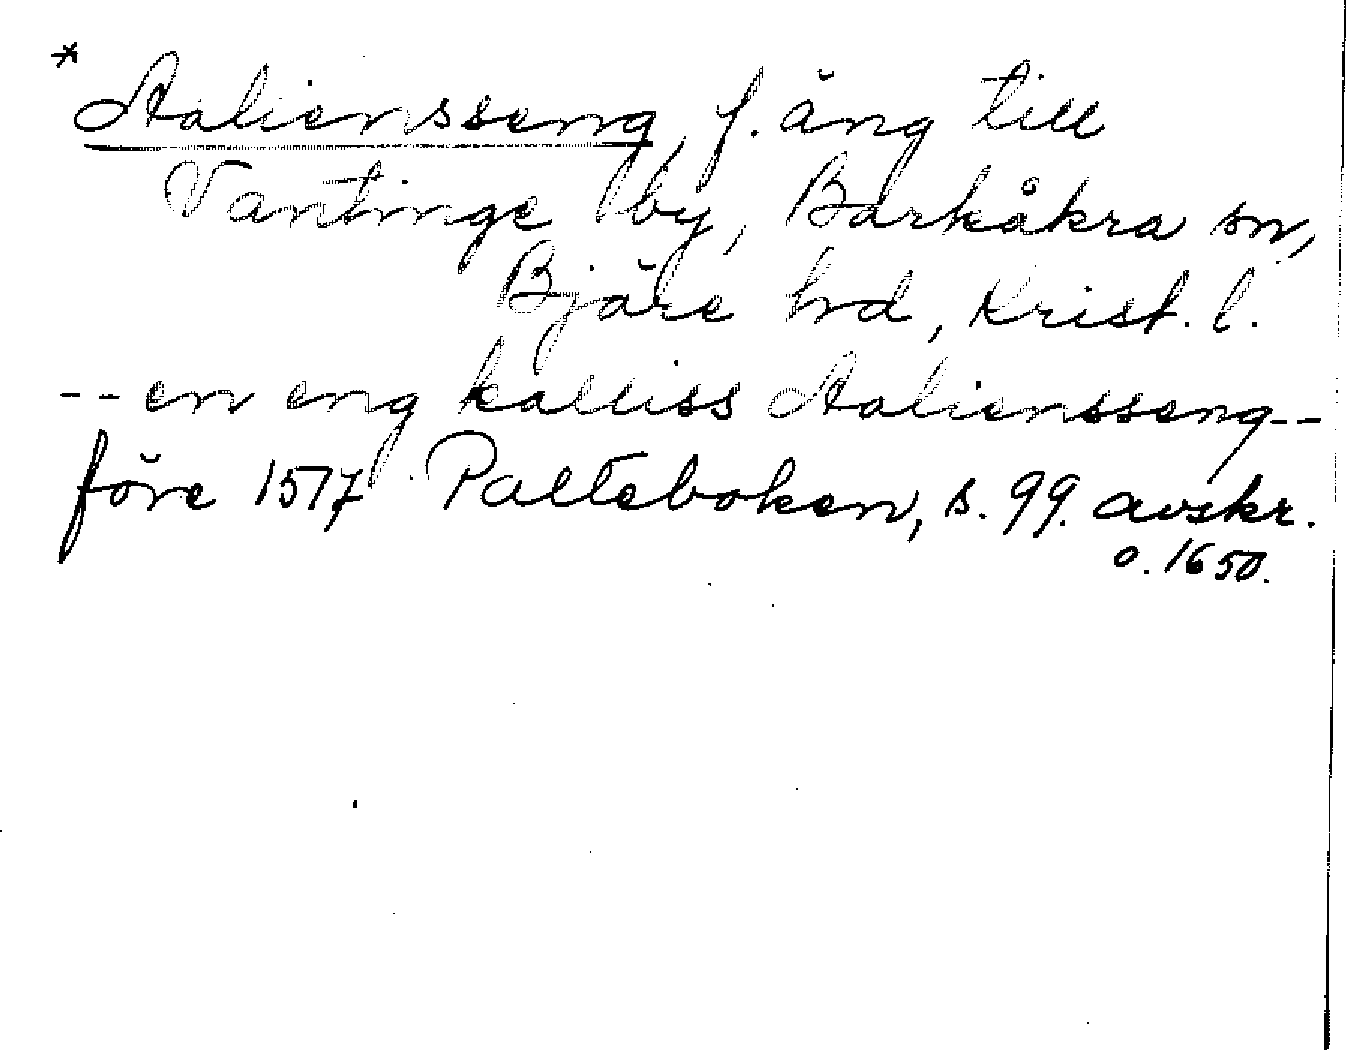 * Staliensseng, f. äng till
Vantinge by, Barkåkra sn,
Bjäre hrd, Krist. l.
-- en eng kalliss Staliensseng --
före 1517 Palteboken, s. 99. avskr.
o. 1650.